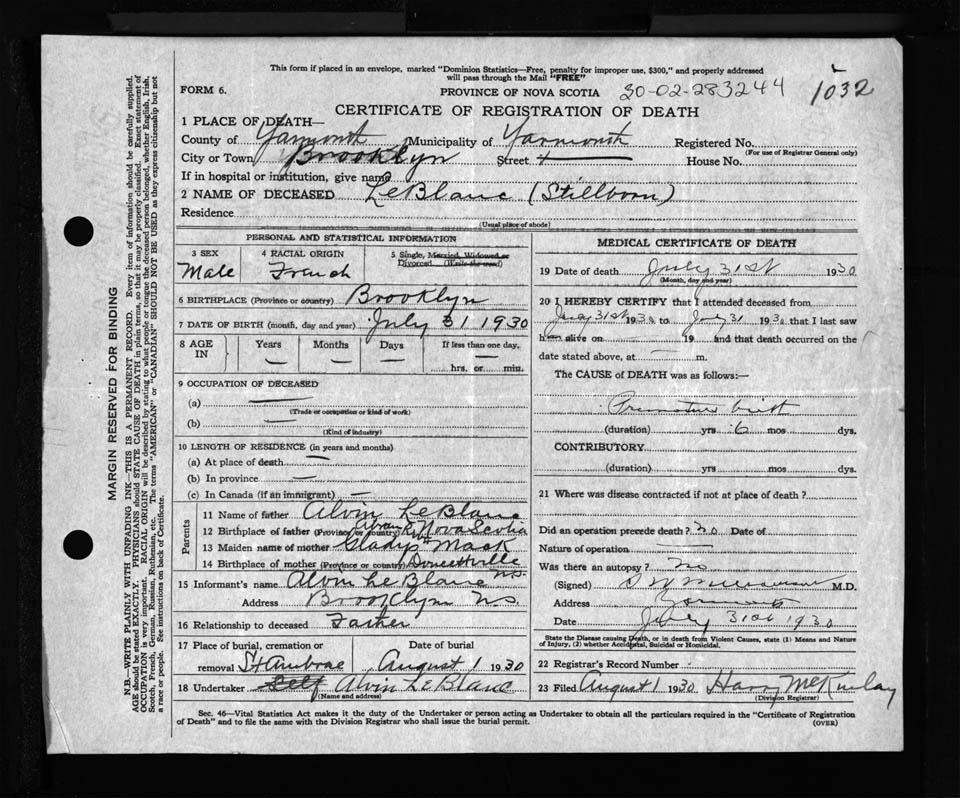 This form if placed in an envelope, marked "Dominion Statistics—Free, penalty for improper use, $300," and properly addressed
will pass through the Mail "FREE"
FORM 6.
PROVINCE OF NOVA SCOTIA 30-02-283244 1032
CERTIFICATE OF REGISTRATION OF DEATH
1 PLACE OF DEATH—
County of Yarmouth Municipality of Yarmouth Registered No.
(For use of Registrar General only)
City or Town Brooklyn Street House No.
If in hospital or institution, give name
2 NAME OF DECEASED LeBlanc (Stillborn)
Residence
(Usual place of abode)
PERSONAL AND STATISTICAL INFORMATION
3 SEX 4 RACIAL ORIGIN 5 Single, Married, Widowed or
Divorced. (Write the word)
Male French
6 BIRTHPLACE (Province or country) Brooklyn
7 DATE OF BIRTH (month, day and year) July 31 1930
8 AGE IN Years Months Days If less than one day,
hrs. or min.
9 OCCUPATION OF DECEASED
(a) —
(Trade or occupation or kind of work)
(b) —
(Kind of industry)
10 LENGTH OF RESIDENCE (in years and months)
(a) At place of death —
(b) In province —
(c) In Canada (if an immigrant) —
Parents
11 Name of father Alvin LeBlanc
12 Birthplace of father (Province or country) Nova Scotia
13 Maiden name of mother Gladys Mack
14 Birthplace of mother (Province or country) Doucettville N.S.
15 Informant's name Alvin LeBlanc
Address Brooklyn N.S.
16 Relationship to deceased Father
17 Place of burial, cremation or Date of burial
removal St Ambrose August 1 1930
18 Undertaker Self Alvin LeBlanc
(Name and address)
MEDICAL CERTIFICATE OF DEATH
19 Date of death July 31st 1930
(Month, day and year)
20 I HEREBY CERTIFY that I attended deceased from
July 31st 1930 to July 31 1930 that I last saw
h alive on — 19 and that death occurred on the
date stated above, at — m.
The CAUSE of DEATH was as follows:—
Premature birth
(duration) yrs 6 mos dys.
CONTRIBUTORY
(duration) yrs mos dys.
21 Where was disease contracted if not at place of death?
Did an operation precede death? no Date of
Nature of operation
Was there an autopsy? No
(Signed) M.D.
Address Yarmouth
Date July 31st 1930
State the Disease causing Death, or in death from Violent Causes, state (1) Means and Nature
of Injury, (2) whether Accidental, Suicidal or Homicidal.
22 Registrar's Record Number
23 Filed August 1 1930 Harry McKinlay
(Division Registrar)
Sec. 46—Vital Statistics Act makes it the duty of the Undertaker or person acting as Undertaker to obtain all the particulars required in the "Certificate of Registration
of Death" and to file the same with the Division Registrar who shall issue the burial permit.
(OVER)
MARGIN RESERVED FOR BINDING
N.B.—WRITE PLAINLY WITH UNFADING INK—THIS IS A PERMANENT RECORD. Every item of information should be carefully supplied.
AGE should be stated EXACTLY. PHYSICIANS should STATE CAUSE OF DEATH in plain terms, so that it may be properly classified. Exact statement of
OCCUPATION is very important. RACIAL ORIGIN will be described by stating to what people or tongue the deceased person belonged, whether English, Irish,
Scotch, French, German, Russian, Ruthenian, etc. The terms "AMERICAN" or "CANADIAN" SHOULD NOT BE USED as they express citizenship but not
a race or people. See instructions on back of Certificate.